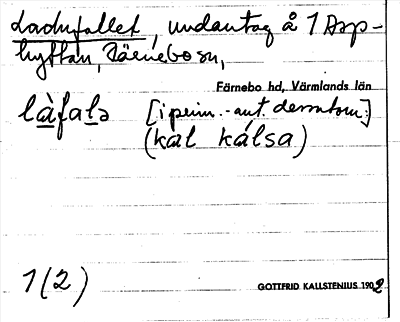 Ladufallet, undantag å 1 Asp-
hyttan, Färnebo sn,
Färnebo hd, Värmlands län
làfalə [i prim.-ant. dessutom:]
(kal kálsa)
1(2)
GOTTFRID KALLSTENIUS 1902